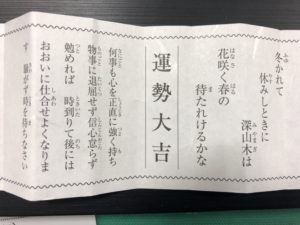 冬かれて
休みしときに
深山木は
花咲く春の
待たれけるかな
運勢大吉
何事も心を正直に強く持ち
物事に退屈せず信心怠らず
勉めれば 時到りて後には
おおいに仕合せよくなりま
す 騒がず時を待ちなさい